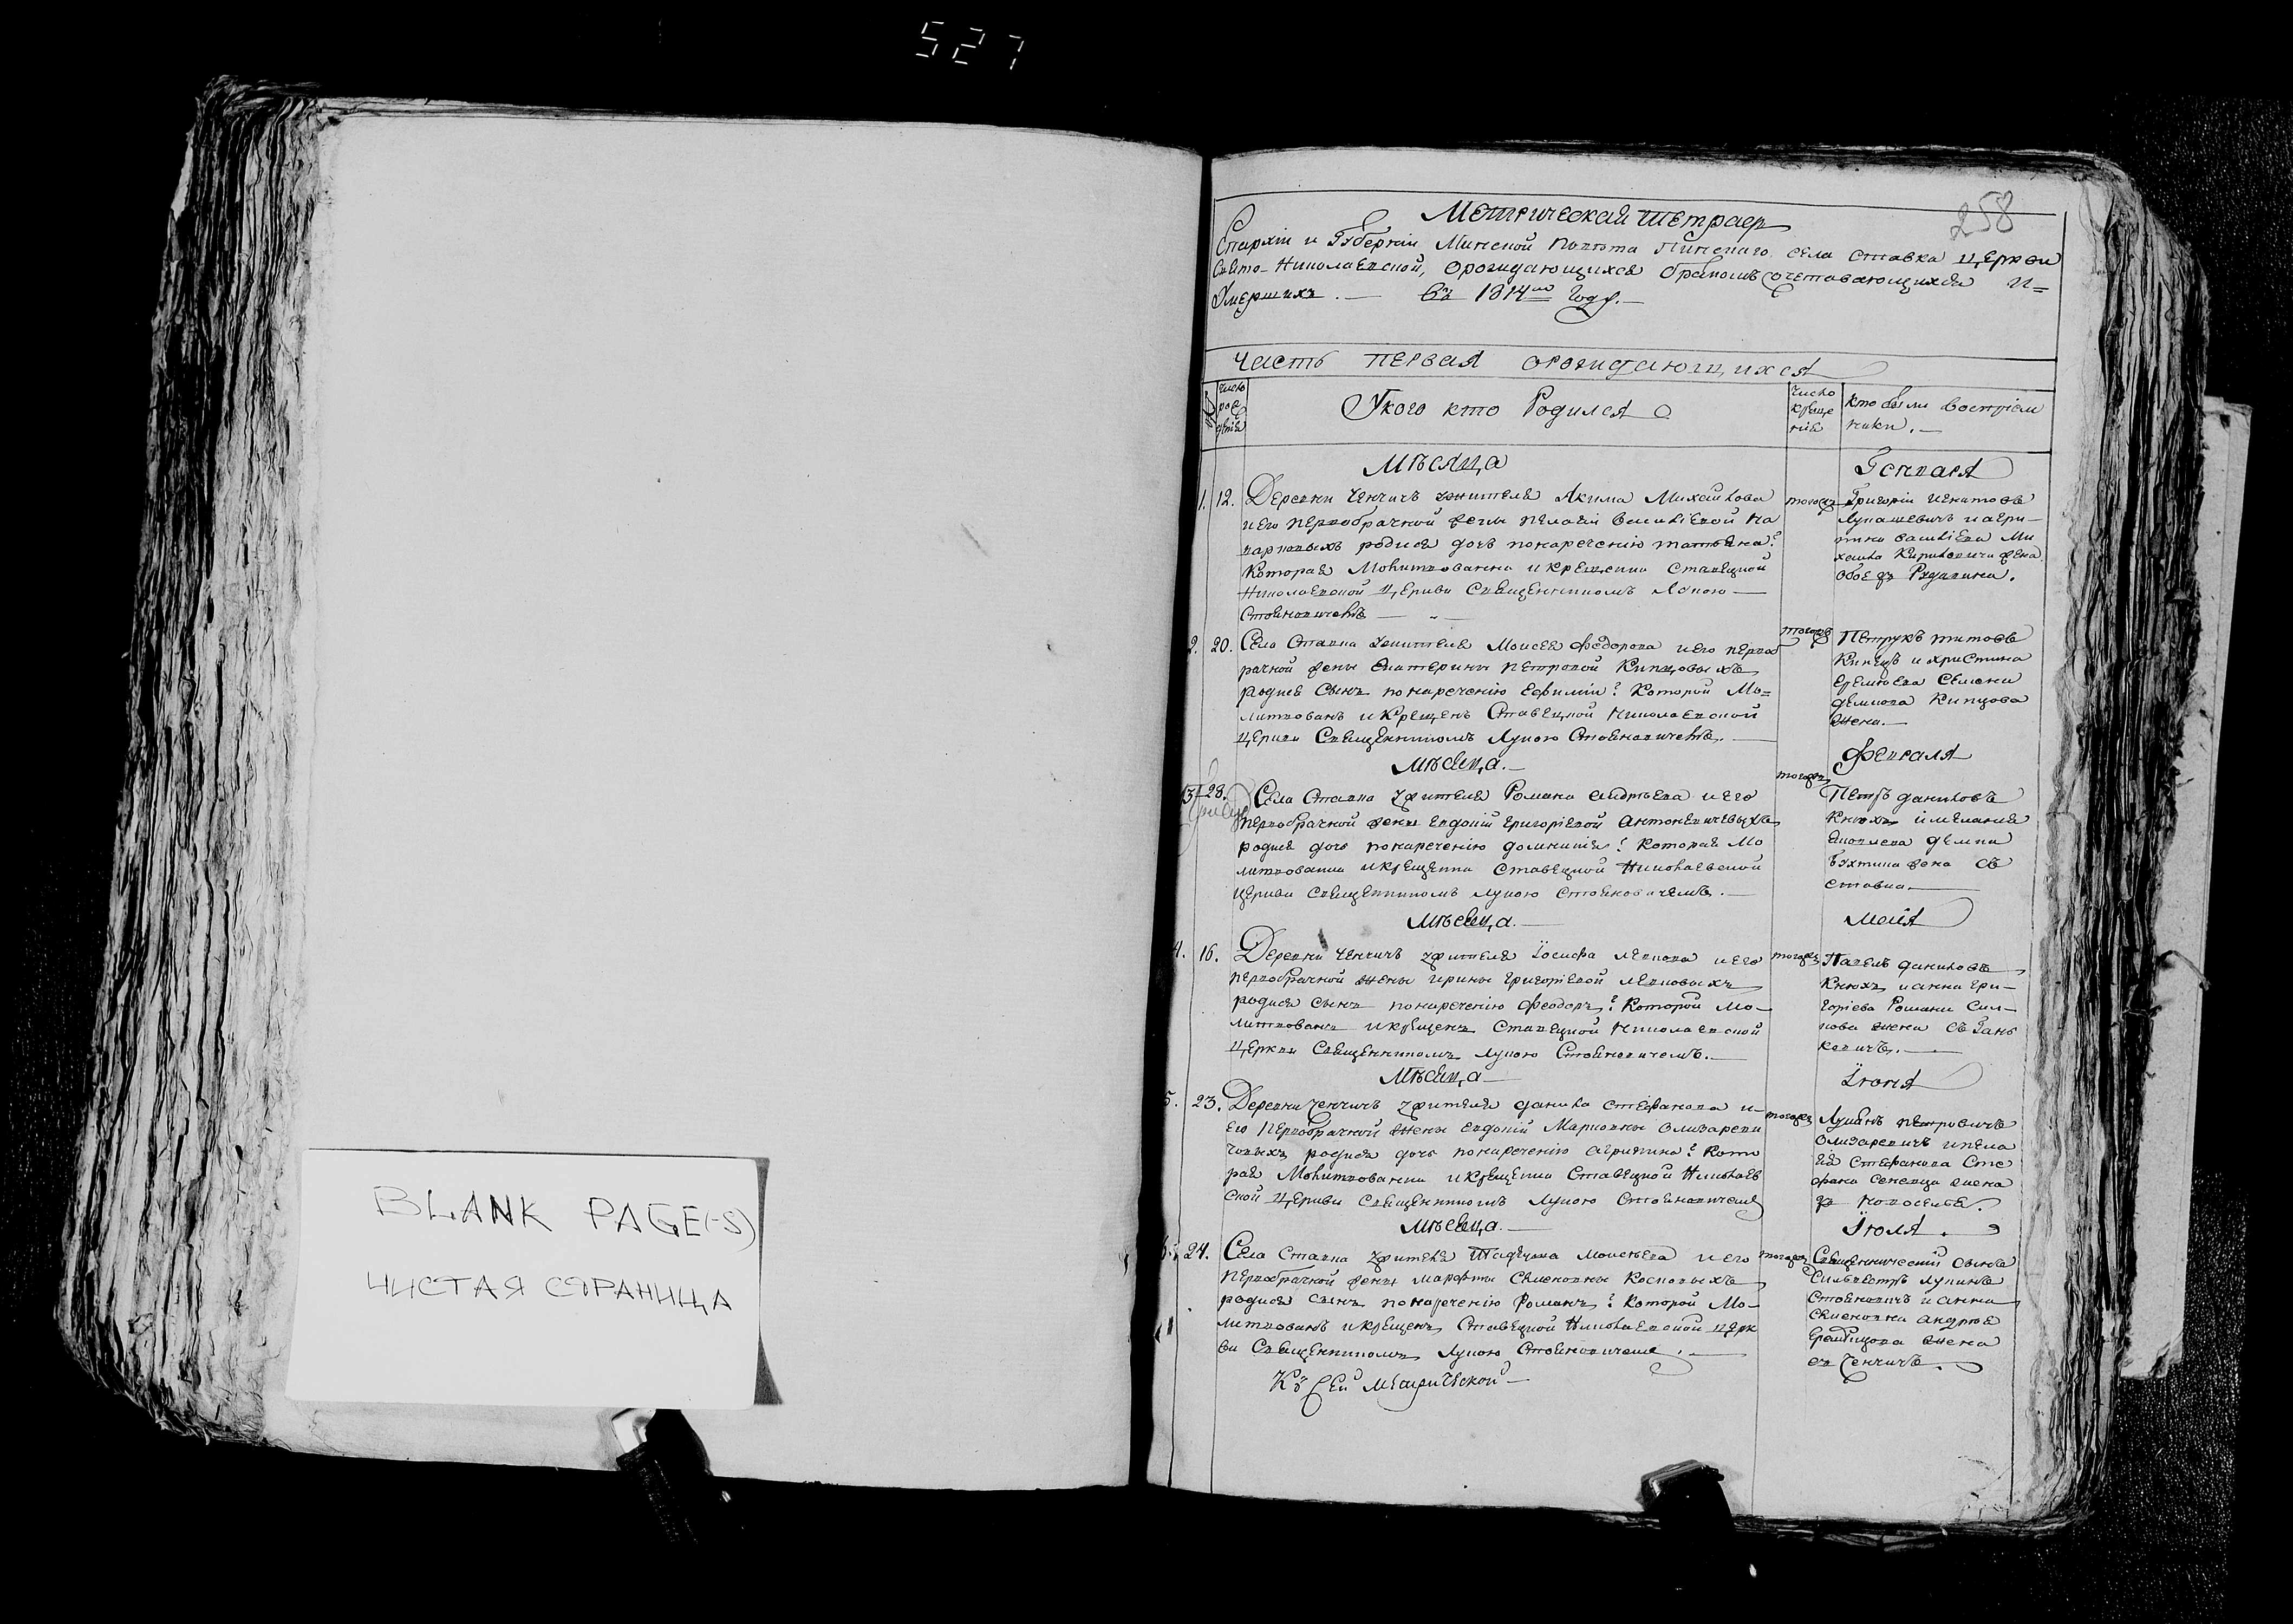 527
258
Метрическая тетрадь
Епархіи и Губерніи Минской Повѣта Пинскаго села Ставка церкви
Свято-Николаевской, о рождающихся бракомъ сочетавающихся и=
Умершихъ. — Въ 1814мъ Году. —
Часть первая о рождающихся
число рождѣнія
У кого кто Родился
число крещенія
кто были воспріемники. —
Мѣсяца
Генваря
1. 12. Деревни Ченчичъ жителя Акима Михайлова
и его первобрачной жены Пелагіи Василіевой
родися дочь по нареченію татьяна:
Которая Молитвованна и крещенна Ставецкой
Николаевской Церкви Священникомъ Лукою
Стояновичемъ
тогожъ
Григорій Игнатовъ
Лукашевичъ и агри-
пина василіева Ми
хаила Кириловича жена
2. 20. Села Ставка жителя Моисея Федорова и его первоб
рачной жены Екатерины Петровой Кипцовыхъ
родися Сынъ по нареченію Ефимій: Которой Мо=
литвованъ и Крещенъ Ставецкой Николаевской
Церкви Священникомъ Лукою Стояновичемъ. —
тогожъ
Петрукъ титовъ
Кипецъ и христина
Семена
демкова Кипцова
жена. —
Мѣсяца. —
Февраля
3. 28. Села Ставка жителя Романа андрѣева и его
первобрачной жены Евдокіи Григоріевой Антоневичевыхъ
родися дочь по нареченію домникія: которая Мо
литвованна и крещенна Ставецкой Николаевской
Церкви Священникомъ Лукою Стояновичемъ. —
тогожъ
Петръ даниловъ
Кнюхъ и меланія
жена съ
ставка. —
Мѣсяца. —
Маія
4. 16. Деревни Ченчичъ жителя Іосифа левкова и его
первобрачной жены ирины Григоріевой левковыхъ
родися сынъ по нареченію феодоръ: Которой Мо-
литвованъ и крещенъ Ставецкой Николаевской
Церкви Священникомъ Лукою Стояновичемъ. —
тогожъ
Павелъ даниловъ
Кнюхъ и анна гри-
горіева Романа
жена съ Гань
ковичъ. —
Мѣсяца
Іюня
5. 23. Деревни Ченчичъ жителя данила стефанова и-
его первобрачной жены евдокіи Марковны Олизареви
човыхъ родися дочь по нареченію агрипина: Кото
рая Молитвованна и крещенна Ставецкой Николаев
ской Церкви Священникомъ Лукою Стояновичемъ
тогожъ
Лукьянъ петровичъ
Олизаревичъ и пела
гія Стефанова Сте
фана жена
Мѣсяца. —
Іюля.
6. 24. Села Ставка жителя Тадеуша Моисѣева и его
первобрачной жены марфты Семеновны Косповыхъ
родися сынъ по нареченію Романъ: Которой Мо-
литвованъ и крещенъ Ставецкой Николаевской церк
ви Священникомъ Лукою Стояновичемъ. —
тогожъ
Священническій сынъ
Сильвестръ лукинъ
Стояновичъ и анна
Семеновна андрея
жена
Ченчичъ.
Къ Сей Метрической —
BLANK PAGE(-S)
ЧИСТАЯ СТРАНИЦА